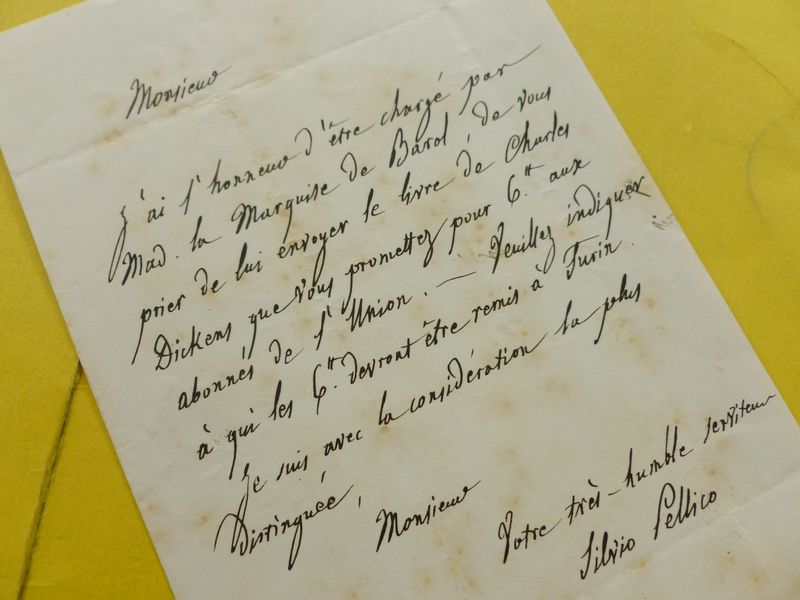 Monsieur
J'ai l'honneur d'être chargé par
Mad. la Marquise de Barol, de vous
prier de lui envoyer le livre de Charles
Dickens que vous promettez pour 6.tt aux
abonnés de l'Union. — Veuillez indiquer
à qui les 6.tt devront être remis à Turin.
Je suis avec la considération la plus
Distinguée,
Monsieur
Votre très-humble serviteur
Silvio Pellico